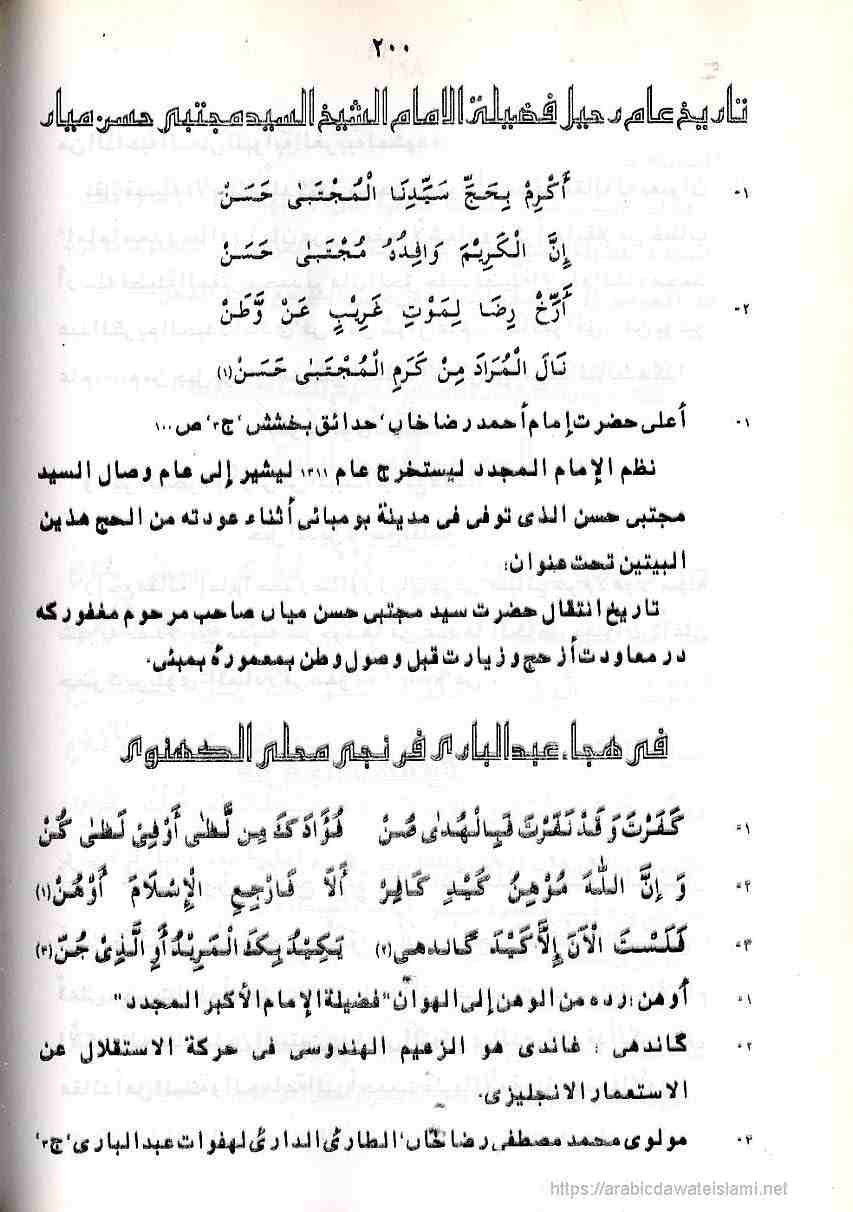 ٢٠٠
تاريخ عام رحيل فضيلة الامام الشيخ السيد مجتبى حسن ميار
١- أَكْرِمْ بِحَجِّ سَيِّدِنَا الْمُجْتَبٰى حَسَنْ
إِنَّ الْكَرِيْمَ وَافِدُهُ مُجْتَبٰى حَسَنْ
٢- أَرِّخْ رِضَا لِمَوْتِ غَرِيْبٍ عَنْ وَّطَنْ
نَالَ الْمُرَادَ مِنْ كَرَمِ الْمُجْتَبٰى حَسَنْ(١)
٠١ أعلى حضرت إمام أحمد رضا خاں‘ حدائق بخشش‘ ج٣‘ ص١٠٠
نظم الإمام المجدد ليستخرج عام ١٣١١ ليشير إلى عام وصال السيد
مجتبى حسن الذى توفى فى مدينة بومبائى أثناء عودته من الحج هذين
البيتين تحت عنوان:
تاريخ انتقال حضرت سيد مجتبى حسن مياں صاحب مرحوم مغفور كه
در معاودت أز حج و زيارت قبل وصول وطن بمعمورهٔ بمبئى.
فى هجاء عبدالبارى فرنجى محلى الكهنوى
١- كَفَرْتَ وَقَدْ نَفَرْتَ فَبِالْهُدٰى صُنْ فُؤَادَكَ مِن لَّظٰى أَوْفِىْ لَظٰى كُنْ
٢- وَإِنَّ اللّٰهَ مُوْهِنُ كَيْدِ كَافِرْ أَلَا فَارْجِعِ الْإِسْلَامَ أَوْهُنْ(١)
٣- فَلَسْتَ الْآنَ إِلَّا كَيْدَ گاندهى(٢) يَكِيْدُ بِكَ الْمَرِيْدُ أَوِ الَّذِىْ جُنّ(٣)
٠١ أوهن: رده من الوهن إلى الهوان "فضيلة الإمام الأكبر المجدد"
٠٢ گاندهى : غاندى هو الزعيم الهندوسى فى حركة الاستقلال عن
الاستعمار الانجليزى.
٠٣ مولوى محمد مصطفى رضا خاں‘ الطارئ الدارئ لهفوات عبدالبارى‘ ج٣‘
https://arabicdawateislami.net